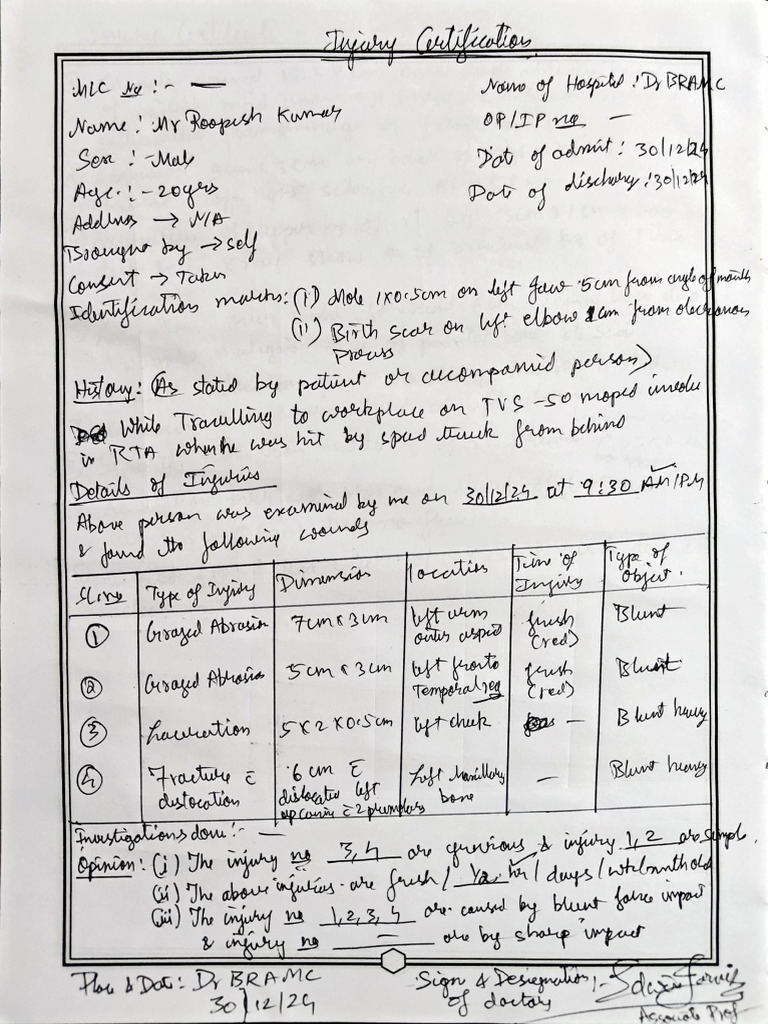 Injury Certification
MLC No :- —
Name of Hospital : Dr BRAMC
Name : Mr Roopesh Kumar
OP/IP no —
Sex : - Male
Date of admit : 30/12/24
Age : - 20 yrs
Date of discharg : 30/12/24
Address → N/A
Brought by → self
Consent → Taken
Identification marks : (i) Mole 1x0.5cm on left jaw .5cm from angle of mouth
(ii) Birth scar on left elbow 1cm from olecranon
process
History : (As stated by patient or accompanied person)
While Travelling to workplace on TVS -50 moped involve
in RTA when he was hit by speed truck from behind
Details of Injuries
Above person was examined by me on 30/12/24 at 9:30 AM/PM
& found the following wounds
Sl.no Type of Injury Dimension Location Time of Injury Type of Object.
① Grazed Abrasion 7cm x 3cm left arm outer aspect fresh (red) Blunt
② Grazed Abrasion 5cm x 3cm left fronto temporal reg fresh (red) Blunt
③ Laceration 5x2x0.5cm left cheek — Blunt heavy
④ Fracture c̄ dislocation .6cm c̄ dislocated left up canine c̄ 2 premolars Left Maxillary bone — Blunt heavy
Investigations done :- —
Opinion : (i) The injury no 3,4 are grevious & injury 1,2 are simple.
(ii) The above injuries are fresh / 1/2 hr / days / wk/month old
(iii) The injury no 1,2,3,4 are caused by blunt force impact
& injury no — are by sharp impact
Place & Date : Dr BRAMC
30/12/24
Sign & Designation :-
of doctors
Associate Prof